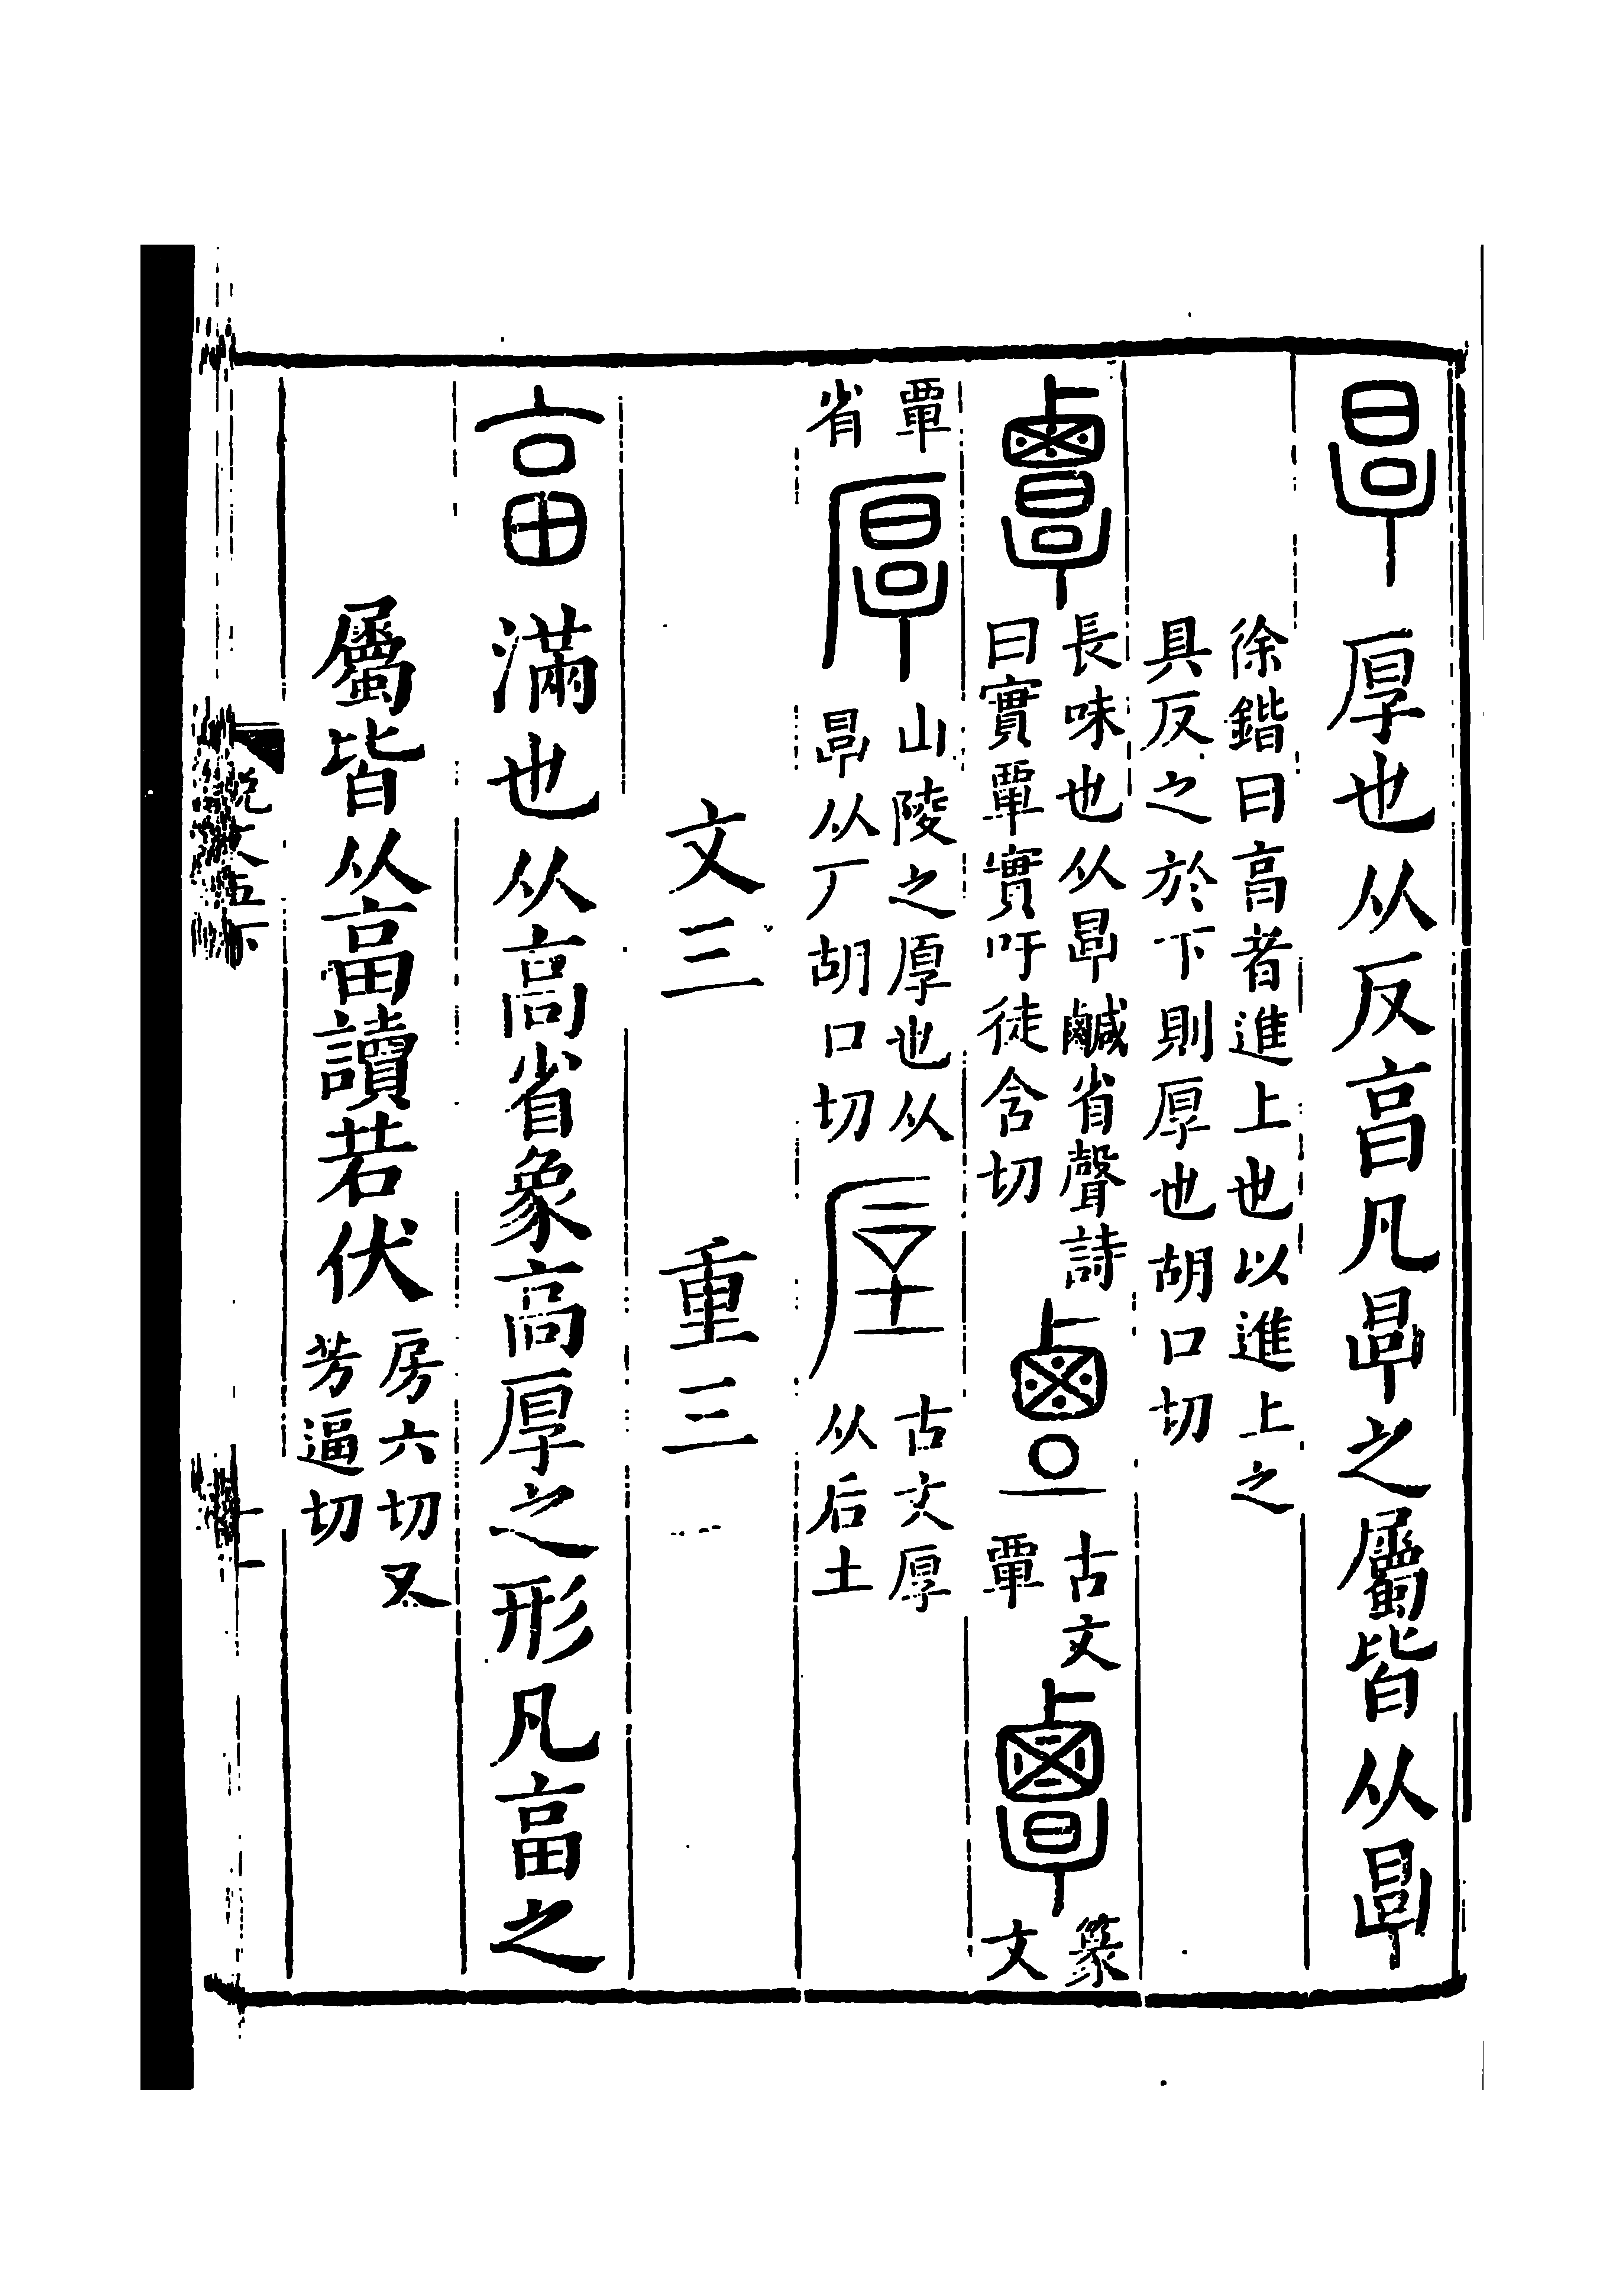 㫗厚也从反𣆪凡㫗之屬皆从㫗
徐鍇曰𣆪者進上也以進上之
具反之於下則厚也胡口切
𪉷長味也从㫗鹹省聲詩
曰實覃實吁徒含切
古文
覃
篆
文
覃
省
厚山陵之厚也从
㫗从厂胡口切
垕古文厚
从后土
文三 重三
畐滿也从高省象高厚之形凡畐之
屬皆从畐讀若伏房六切又
芳逼切
說文五下
十一